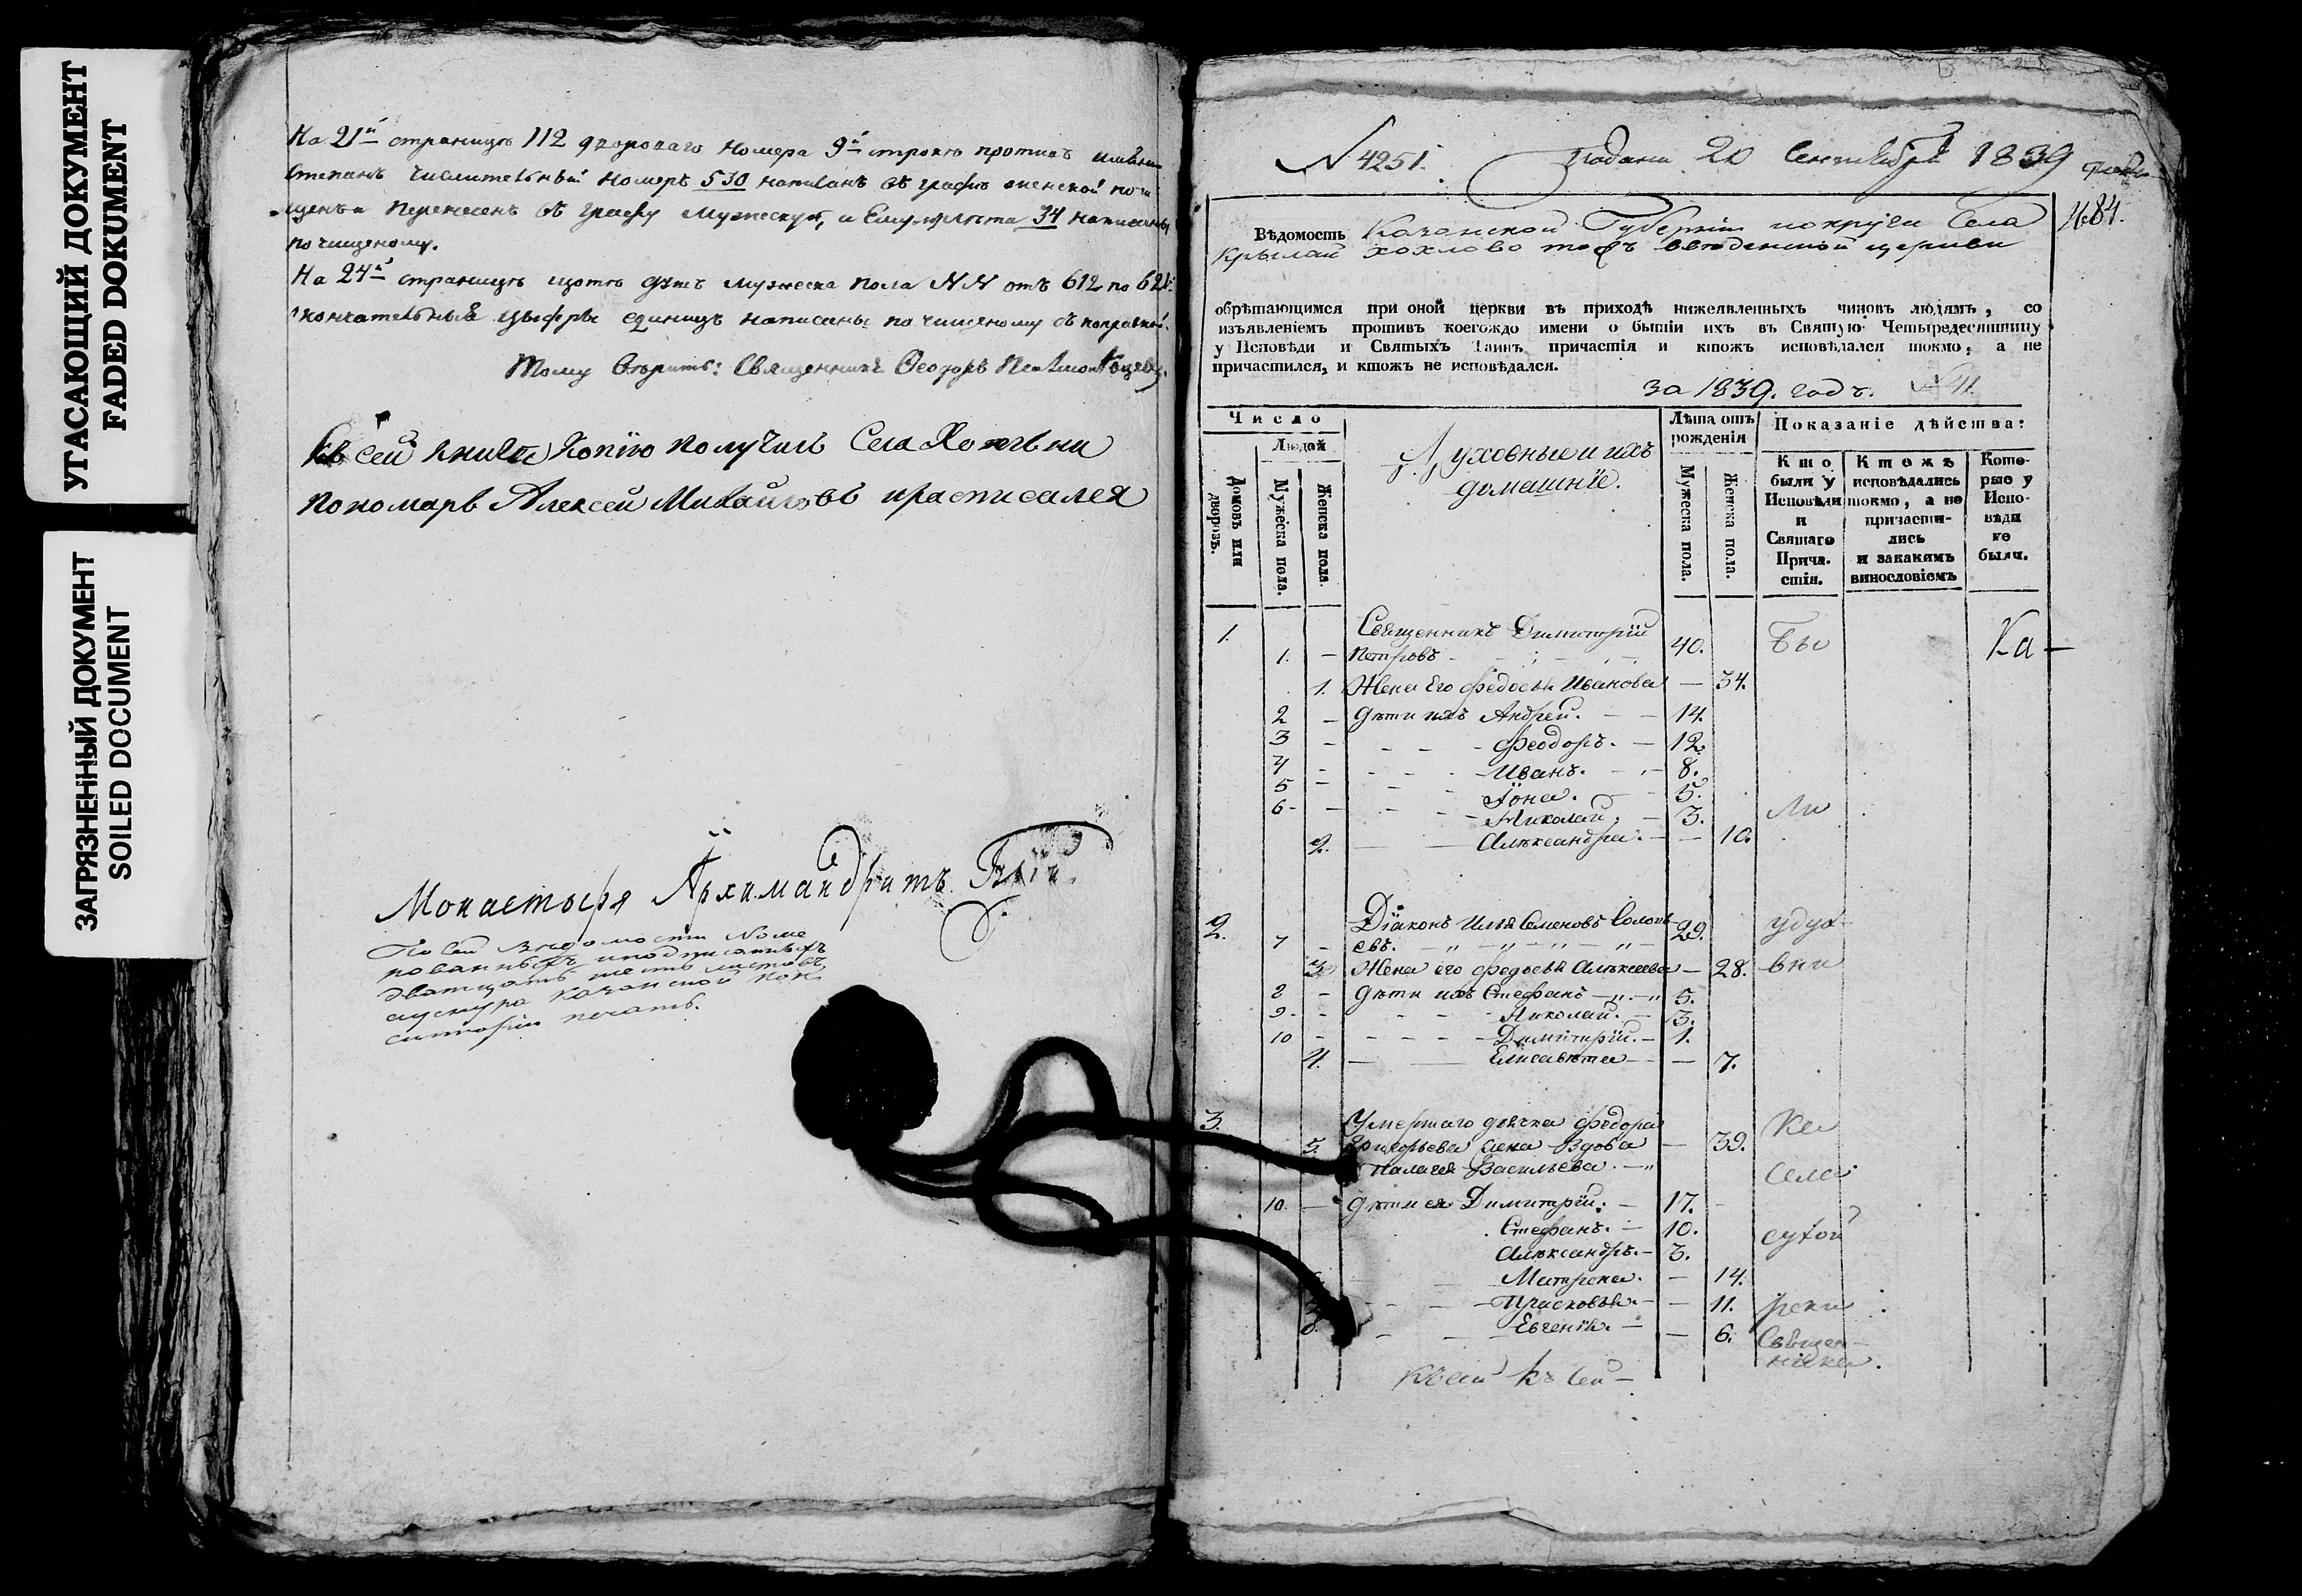 УГАСАЮЩИЙ ДОКУМЕНТ
FADED DOKUMENT
ЗАГРЯЗНЕННЫЙ ДОКУМЕНТ
SOILED DOCUMENT
На 21й страницѣ 112 двороваго номера 9й строкѣ противъ имѣни
Степанъ числительный номеръ 530 написанъ въ графѣ женской по
щенъ и перенесенъ въ графу Мужескую, и Ему лѣта 34 написаны
по чищеному.
На 24й страницѣ щотъ дѣтъ мужеска пола NN отъ 612 по 621
окончательныя цыфры единицъ написаны по чищеному съ поправкой.
Тому вѣритъ: Священникъ Ѳеодоръ
Къ сей книге Копію получилъ Села
пономарь Алексей Михайловъ и расписался
Монастыря Архимандритъ
По сей Вѣдомости Номе
рованныхъ и подписанныхъ
дватцать шесть листовъ
у шнура казанской кон
систоріи печать.
N 4251. Подана 20 Сентября 1839
№84.
Вѣдомость Казанской Губерніи Села
Хохлово тожъ введенской церкви
обрѣтающимся при оной церкви въ приходѣ нижеявленныхъ чиновъ людямъ, со
изъявленіемъ противъ коегождо имени о бытіи ихъ въ Святую Четыредесятницу
у Исповѣди и Святыхъ Таинъ причастія и ктожъ исповѣдался токмо, а не
причастился, и ктожъ не исповѣдался.
за 1839. годъ.
Число
Людей
Домовъ или дворовъ.
Мужеска пола.
Женска пола.
Духовные и ихъ
домашніе.
Лѣта отъ рожденія
Мужеска пола.
Женска пола.
Показаніе дѣйства:
Кто были у Исповѣди и Святаго Прича- стія.
Ктожъ исповѣдались токмо, а не причасти- лись и закакимъ винословіемъ
Кото- рые у Испо- вѣди не были.
1. Священникъ Димитрій
1. — Петровъ 40. Ка —
1. Жена Его Федосья Иванова — 34.
2 — Дѣти ихъ Андрей. — 14.
3 — Феодоръ. — 12.
4 — Иванъ. — 8.
5 — Іона. — 5.
6 — Николай. — 3.
2. Александра. — 10.
2. Діаконъ Илья Семеновъ Солов
7 — евъ. 29.
3 Жена его Федосья Алексеева — 28.
8 — Дѣти ихъ Стефанъ — 5.
9 — Николай. — 3.
10 — Димитрій. — 1.
4. Елисавета — 7.
3. Умершаго дьячка Федора
5. Григорьева жена Вдова — 39.
Палагея Васильева.
10. — Дѣти ея Димитрій. — 17.
Стефанъ. — 10.
Александръ. — 3.
Матрена. — 14.
Прасковья. — 11.
Евгенія. — 6.
Села
сухой
реки
Священ-
ника.
Къ сей